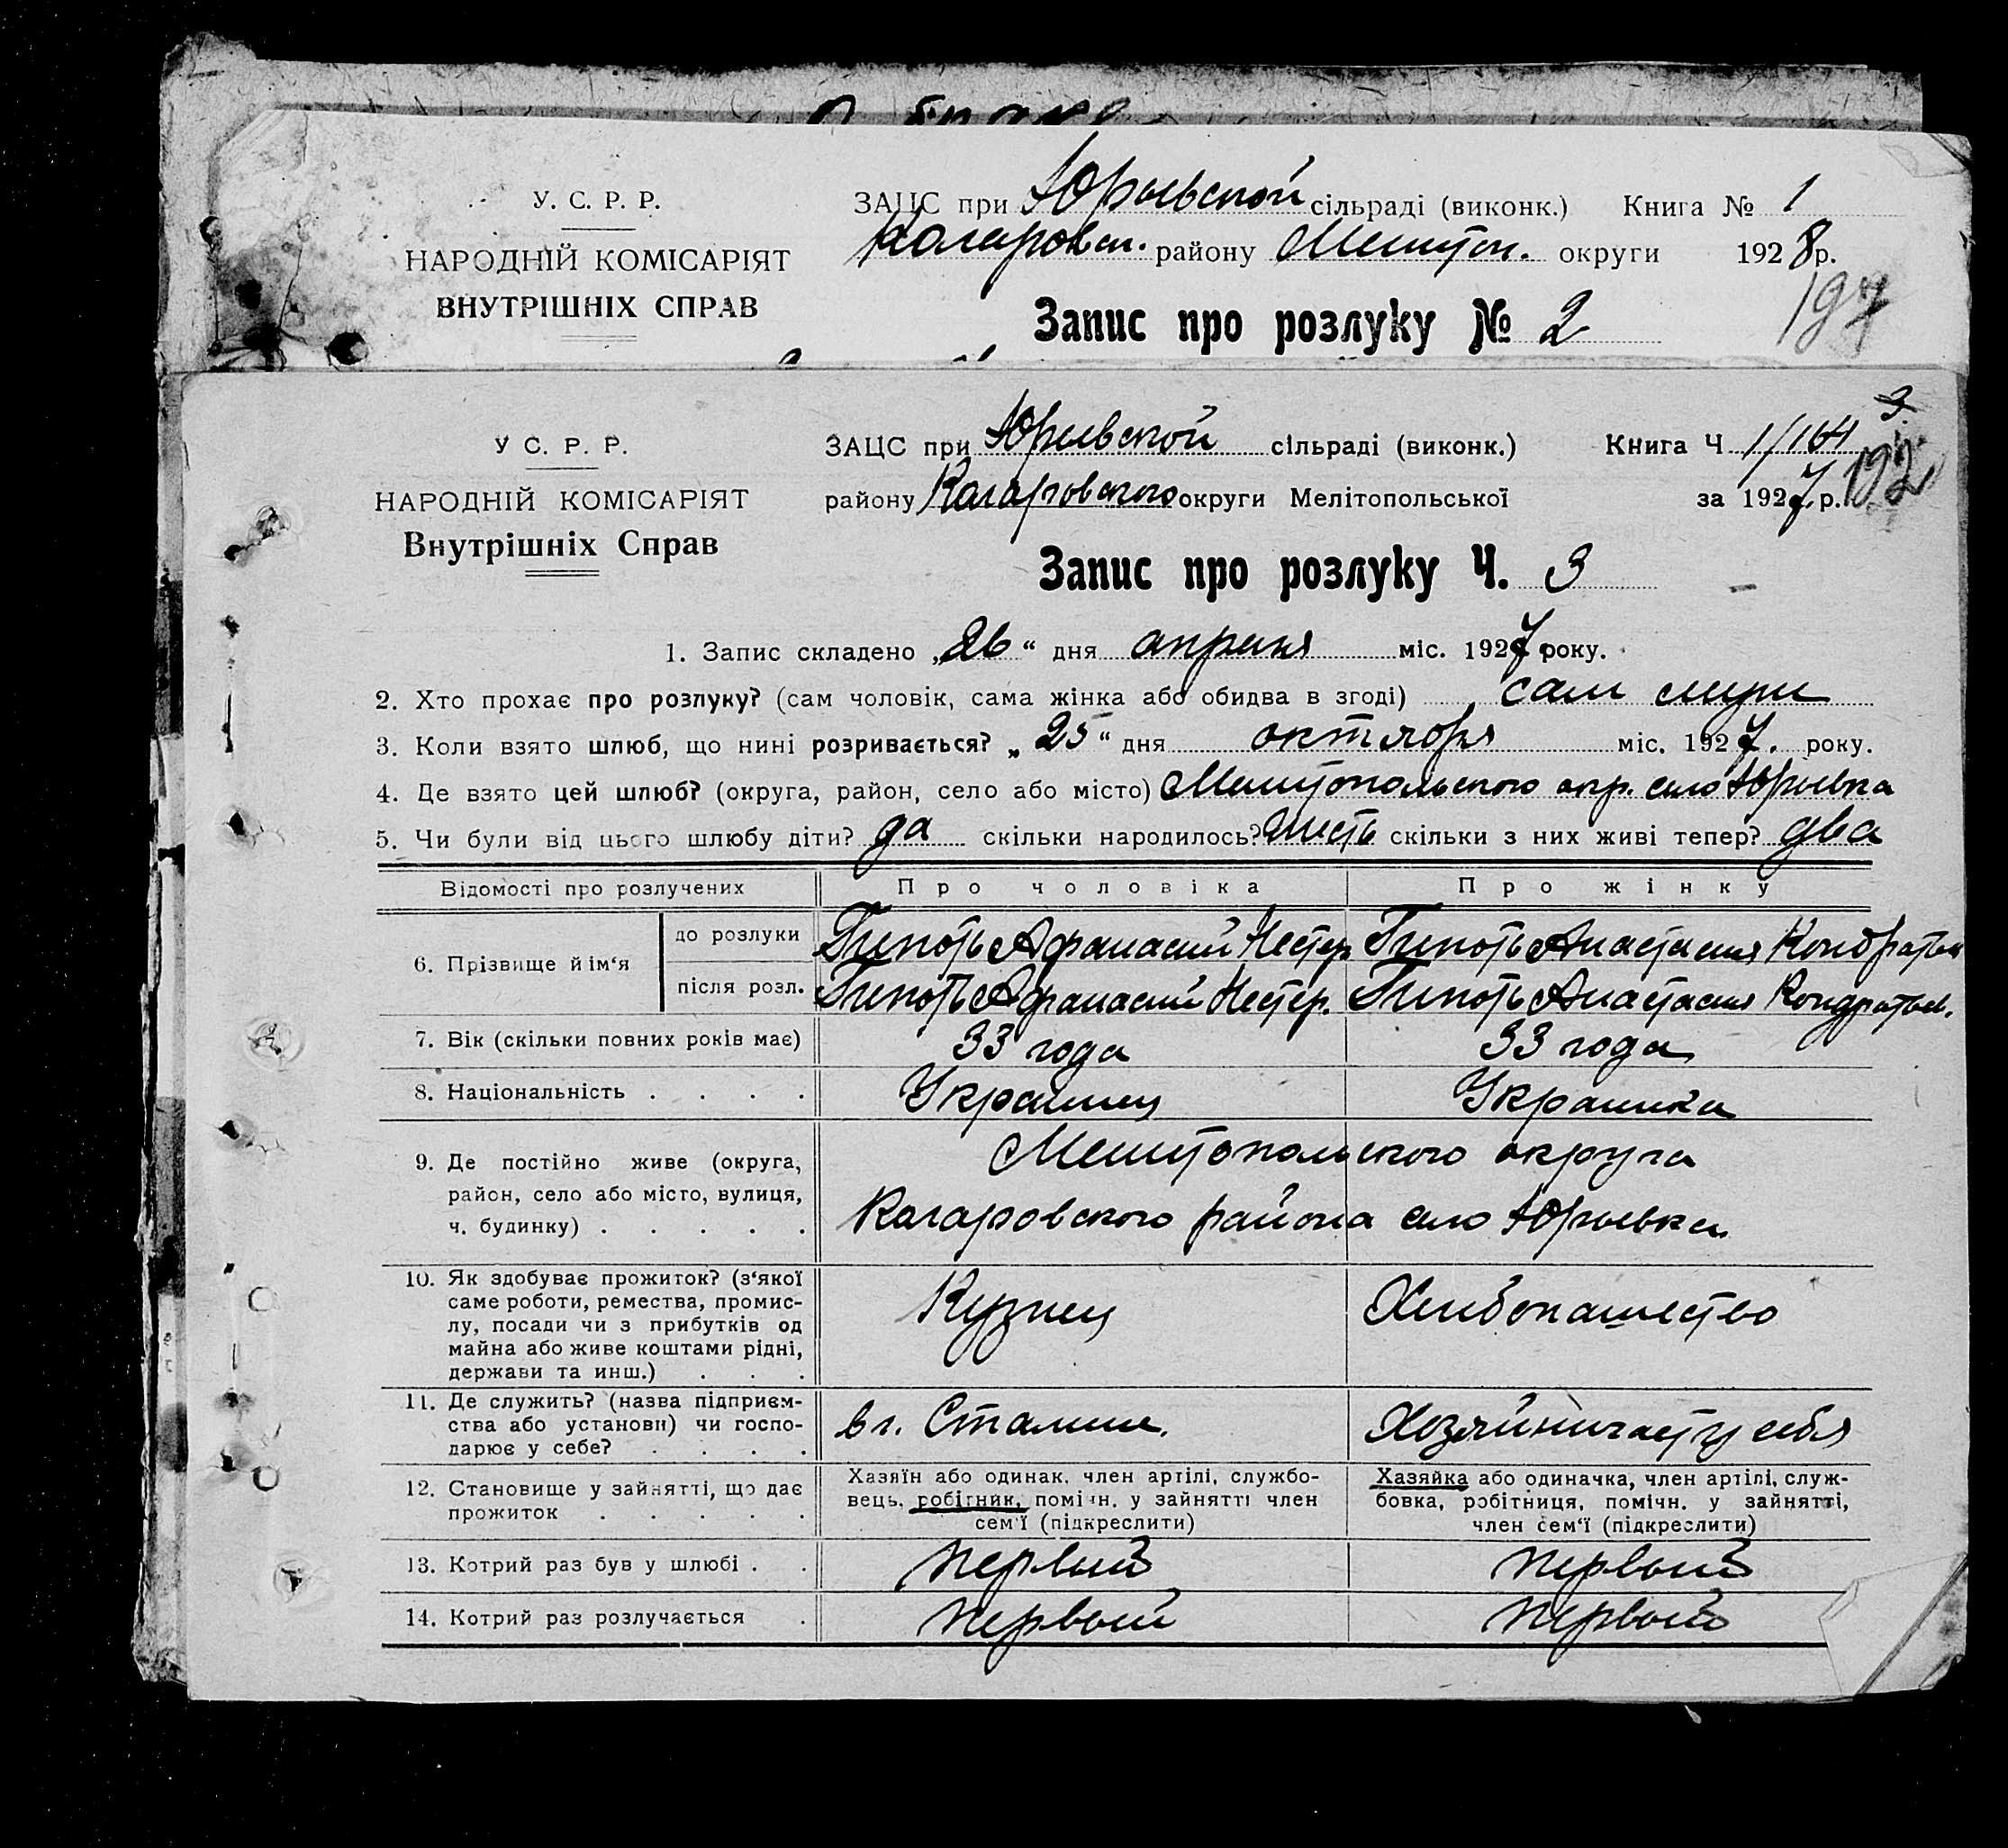 У. С. Р. Р.
НАРОДНІЙ КОМІСАРІЯТ
ВНУТРІШНІХ СПРАВ
ЗАЦС при Юрьевской сільраді (виконк.) Книга № 1
району округи 1928 р.
197
Запис про розлуку № 2
У С. Р. Р.
НАРОДНІЙ КОМІСАРІЯТ
Внутрішніх Справ
ЗАЦС при Юрьевской сільраді (виконк.) Книга Ч 1/164
району Кагаровского округи Мелітопольської за 1927 р. 192
Запис про розлуку Ч. 3
1. Запис складено „26“ дня апреля міс. 1927 року.
2. Хто прохає про розлуку? (сам чоловік, сама жінка або обидва в згоді) сам муж
3. Коли взято шлюб, що нині розривається? „25“ дня октября міс. 1927. року.
4. Де взято цей шлюб? (округа, район, село або місто) Мелитопольского окр. село Юрьевка
5. Чи були від цього шлюбу діти? да скільки народилось? шесть скільки з них живі тепер? два
Відомості про розлучених Про чоловіка Про жінку
6. Прізвище й ім‘я
до розлуки Гипоть Афанасий Нестер Гипоть Анастасия Кондратьев
після розл. Гипоть Афанасий Нестер. Гипоть Анастасия Кондратьев.
7. Вік (скільки повних років має) 33 года 33 года
8. Національність . . . . Украинец Украинка
9. Де постійно живе (округа, Мелитопольского округа
район, село або місто, вулиця,
ч. будинку) . . . . . Кагаровского района село Юрьевка
10. Як здобуває прожиток? (з‘якої
саме роботи, ремества, промис-
лу, посади чи з прибутків од
майна або живе коштами рідні,
держави та инш.) . . .
Кузнец Хлибопашество
11. Де служить? (назва підприєм-
ства або установи) чи госпо-
дарює у себе? . . . .
в г. Сталине. Хозяйничает у себя
12. Становище у зайнятті, що дає
прожиток . . . . .
Хазяїн або одинак. член артілі, службо-
вець, робітник, помічн. у зайнятті член
сем‘ї (підкреслити)
Хазяйка або одиначка, член артілі, служ-
бовка, робітниця, помічн. у зайнятті,
член сем‘ї (підкреслити)
13. Котрий раз був у шлюбі . . первый первый
14. Котрий раз розлучається . первый первый